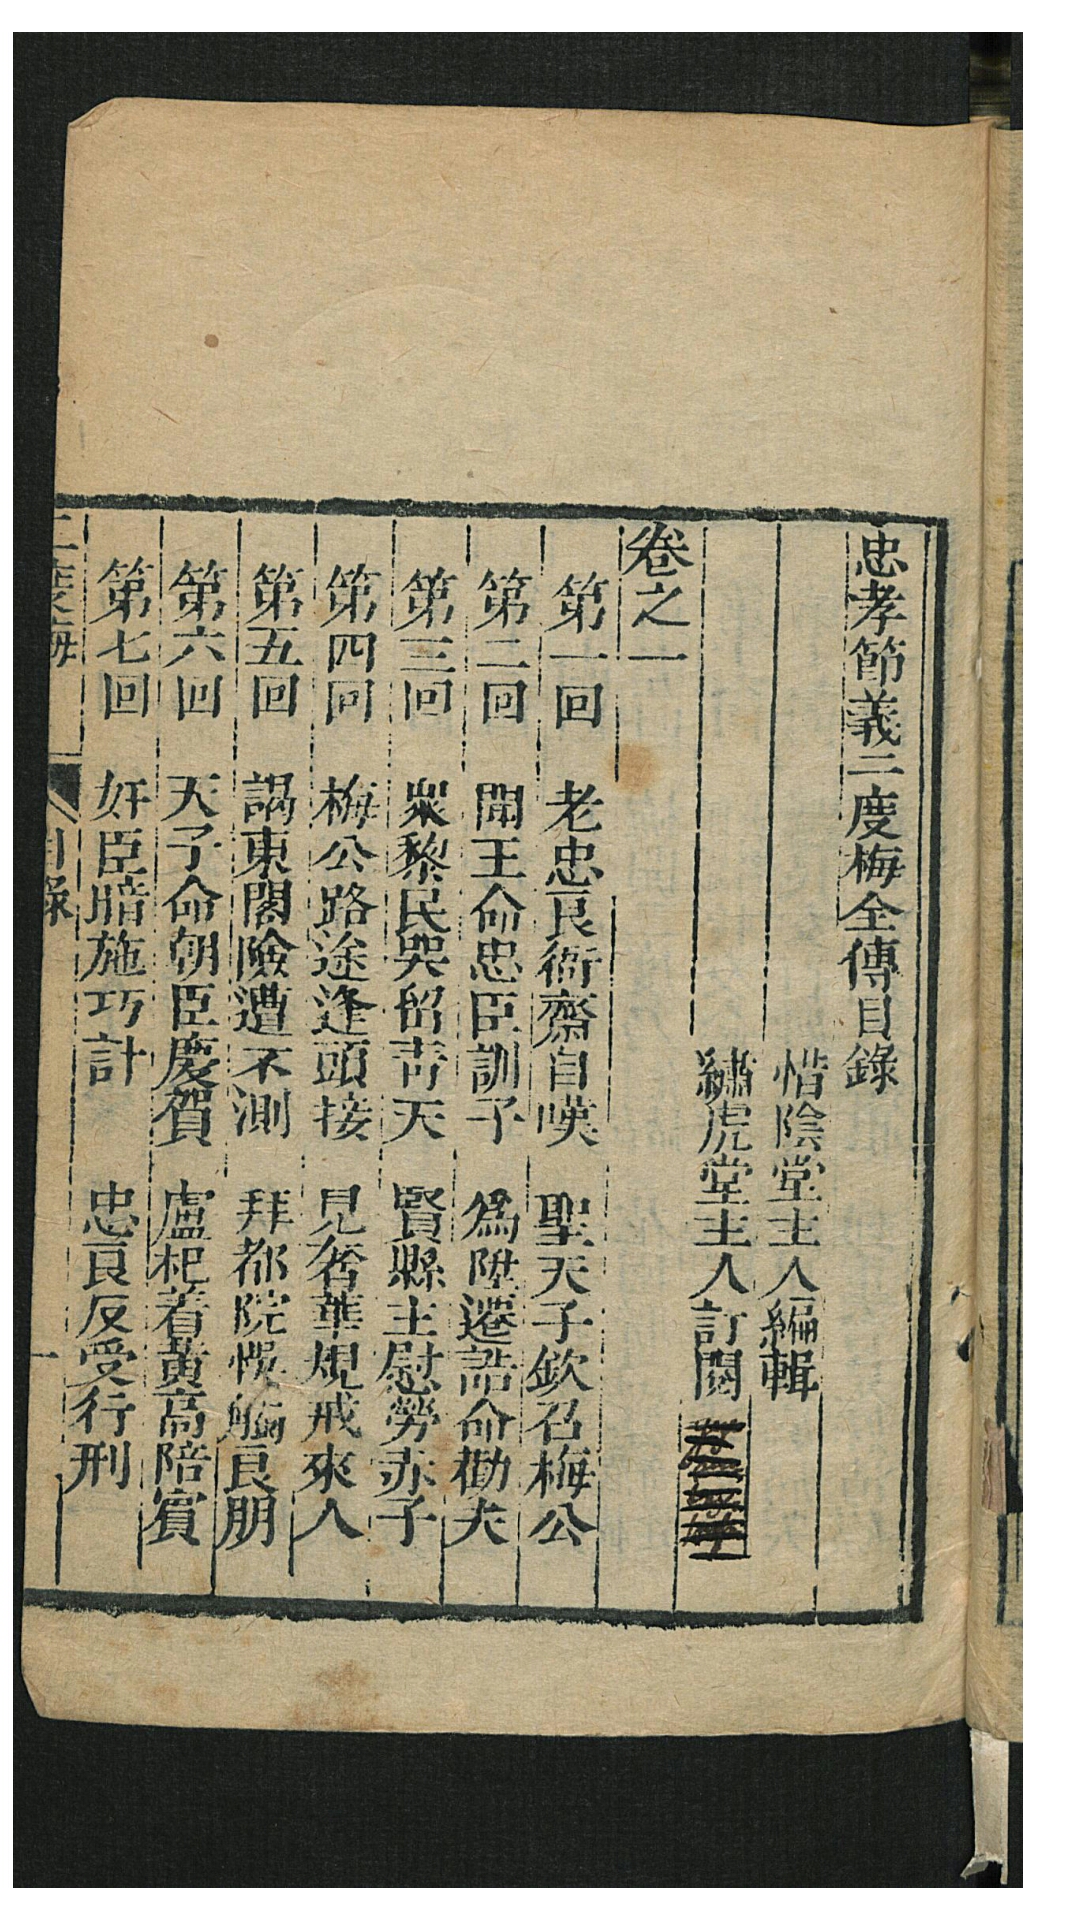 忠孝節義二度梅全傳目錄
惜陰堂主人編輯
繡虎堂主人訂閱
卷之一
第一回 老忠良衙齋自嘆 聖天子欽召梅公
第二回 聞王命忠臣訓子 為陞遷誥命勸夫
第三回 衆黎民哭留靑天 賢縣主慰勞赤子
第四回 梅公路途逢頭接 見奢華規戒來人
第五回 謁東閣險遭不測 拜都院悞觸良朋
第六回 天子命朝臣慶賀 盧杞着黃高陪賓
第七回 奸臣暗施巧計 忠良反受行刑
二度梅 目錄 一